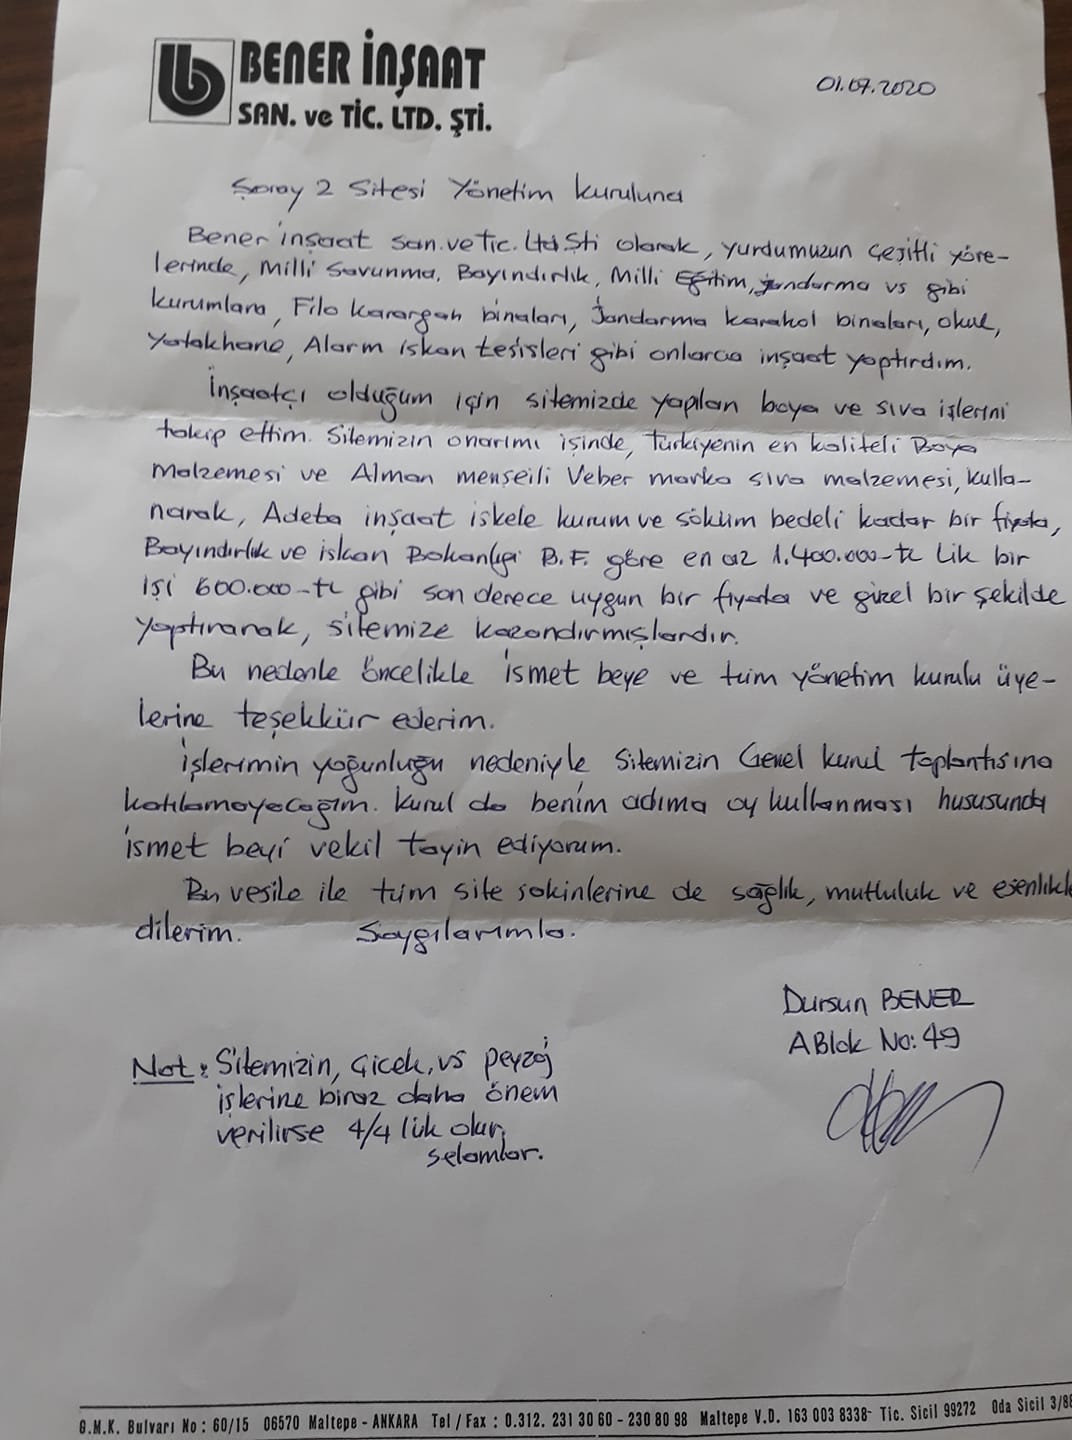 BENER İNŞAAT
SAN. ve TİC. LTD. ŞTİ.
01.07.2020
Şoray 2 Sitesi Yönetim kuruluna
Bener inşaat san.ve Tic. Ltd Şti olarak, yurdumuzun çeşitli yöre-
lerinde, Milli Savunma, Bayındırlık, Milli Eğitim, jandarma vs gibi
kurumlara, Filo karargah binaları, Jandarma karakol binaları, okul,
yatakhane, Alarm iskan tesisleri gibi onlarca inşaat yaptırdım.
İnşaatçı olduğum için sitemizde yapılan boya ve sıva işlerini
takip ettim. Sitemizin onarımı işinde, Türkiyenin en kaliteli Boya
Malzemesi ve Alman menşeili Veber marka sıva malzemesi, kulla-
narak, Adeta inşaat iskele kurum ve söküm bedeli kadar bir fiyata,
Bayındırlık ve iskan Bakanlığı B.F. göre en az 1.400.000-tl lik bir
işi 600.000-tl gibi son derece uygun bir fiyata ve güzel bir şekilde
yaptırarak, sitemize kazandırmışlardır.
Bu nedenle öncelikle ismet beye ve tüm yönetim kurulu üye-
lerine teşekkür ederim.
işlerimin yoğunluğu nedeniyle sitemizin Genel kurul toplantısına
katılamayacağım. Kurul da benim adıma oy kullanması hususunda
ismet beyi vekil tayin ediyorum.
Bu vesile ile tüm site sakinlerine de sağlık, mutluluk ve esenlikle
dilerim. Saygılarımla.
Dursun BENER
A Blok No: 49
Not: Sitemizin, Çiçek, vs peyzaj
işlerine biraz daha önem
verilirse 4/4 lük olur.
selamlar.
G.M.K. Bulvarı No : 60/15 06570 Maltepe - ANKARA Tel / Fax : 0.312. 231 30 60 - 230 80 98 Maltepe V.D. 163 003 8338- Tic. Sicil 99272 Oda Sicil 3/88